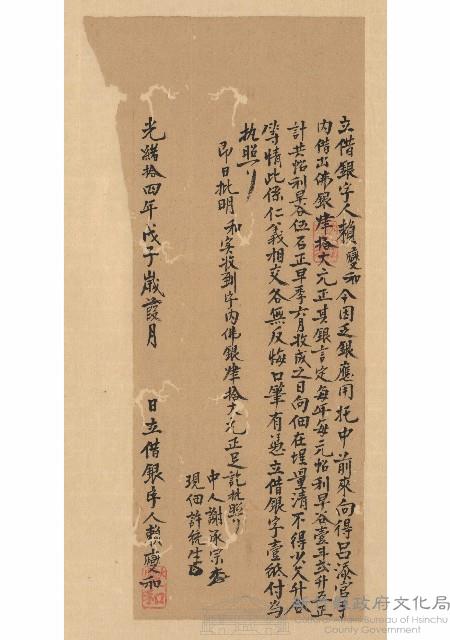 立借銀字人賴變和今因乏銀應用托中前來向得呂添官手
內借出佛銀肆拾大元正其銀言定每年每元帖利早谷壹斗弍升五正
計共帖利早谷伍石正早季六月收成之日向佃在埕量清不得少欠升合
等情此係仁義相交各無反悔口筆有憑立借銀字壹紙付為
執照
即日批明和實收到字內佛銀肆拾大元正足訖執照
中人謝承宗
現佃許統生
光緒拾四年戊子歲葭月 日立借銀字人賴變和
新竹縣政府文化局
Cultural Affairs Bureau of Hsinchu
County Government